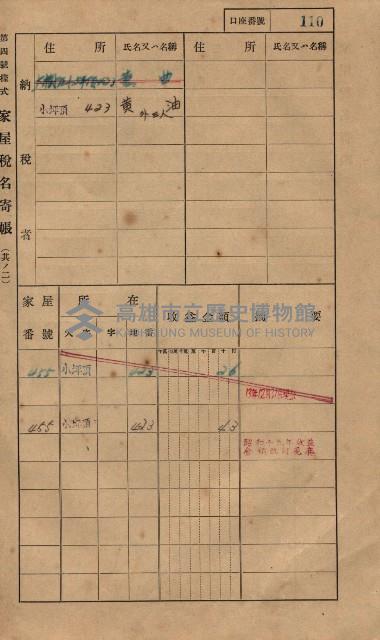 口座番號 110
第四號樣式 家屋稅名寄帳 (其ノ二)
住所 氏名又ハ名稱 住所 氏名又ハ名稱
納稅者
小坪頂 423 黄 油
外三人
高雄市立歷史博物館
KAOHSIUNG MUSEUM OF HISTORY
家屋番號 所在 收益金額 摘要
大字 字 地番
455 小坪頂 423 26
455 小坪頂 423 43
昭和十六年收益